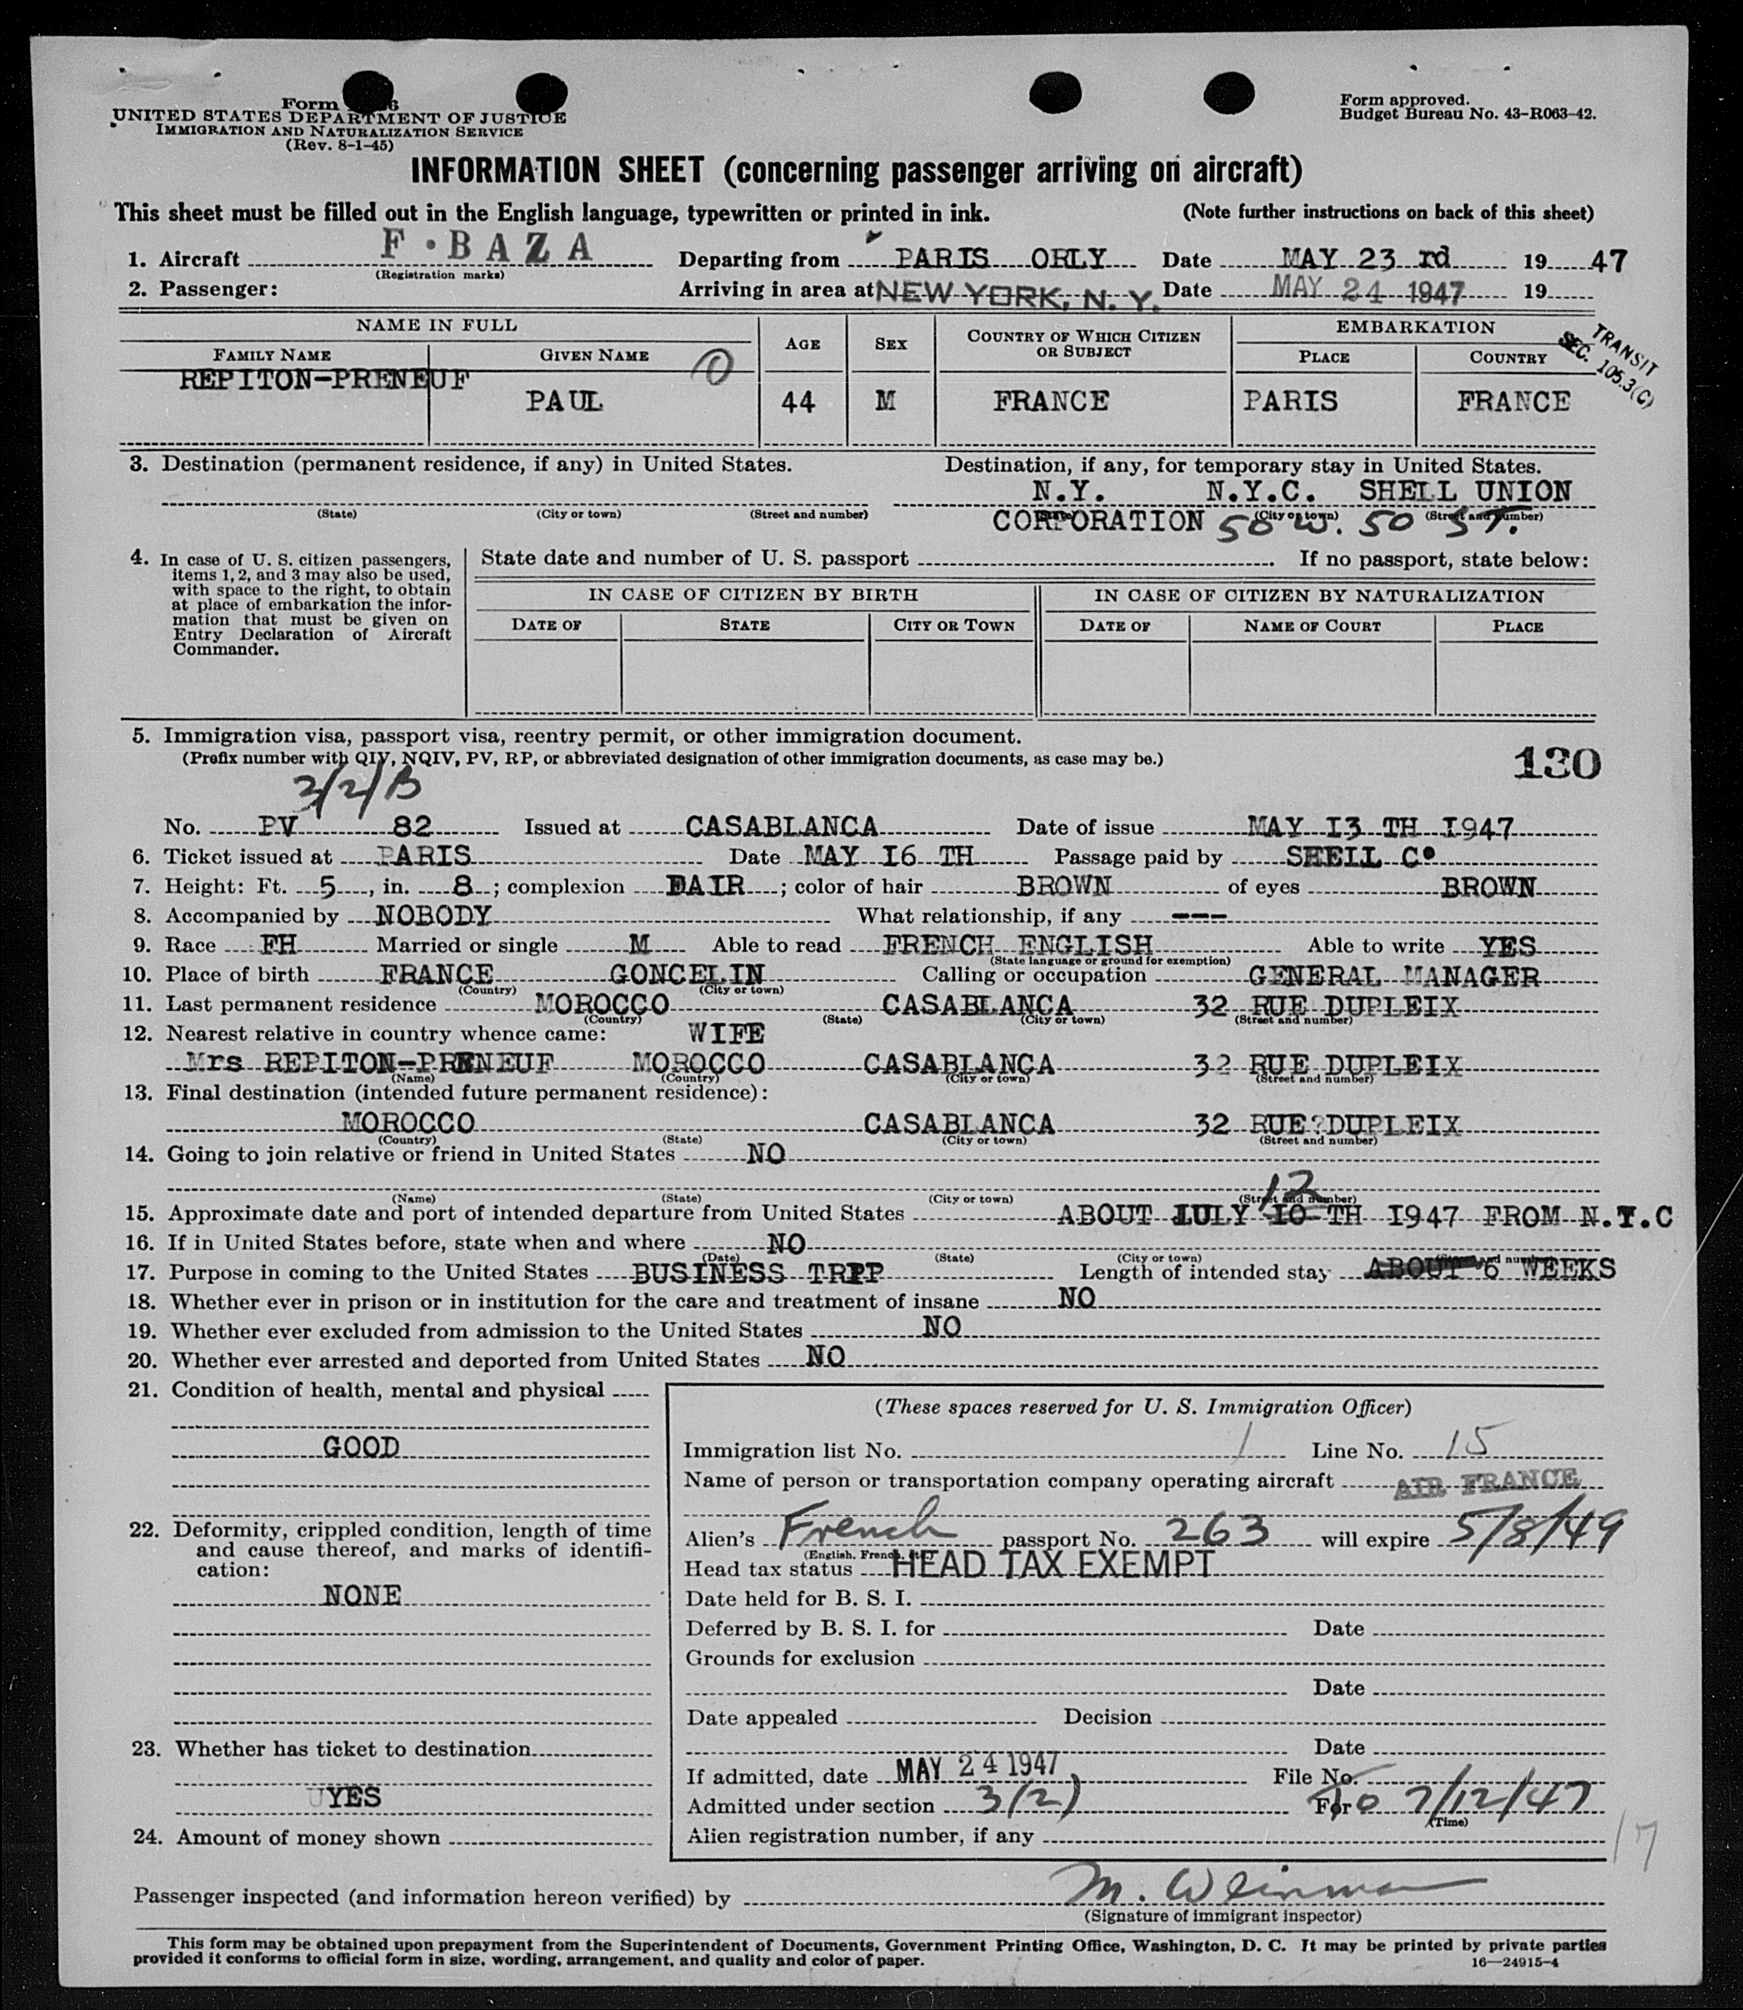 Form
UNITED STATES DEPARTMENT OF JUSTICE
IMMIGRATION AND NATURALIZATION SERVICE
(Rev. 8-1-45)
Form approved.
Budget Bureau No. 43-R063-42.
INFORMATION SHEET (concerning passenger arriving on aircraft)
This sheet must be filled out in the English language, typewritten or printed in ink. (Note further instructions on back of this sheet)
1. Aircraft F·BAZA Departing from PARIS ORLY Date MAY 23 rd 19 47
(Registration marks)
2. Passenger: Arriving in area at NEW YORK, N. Y. Date MAY 24 1947 19
NAME IN FULL AGE SEX COUNTRY OF WHICH CITIZEN OR SUBJECT EMBARKATION
FAMILY NAME GIVEN NAME PLACE COUNTRY
TRANSIT
SEC. 105.3(C)
REPITON-PRENEUF PAUL 44 M FRANCE PARIS FRANCE
3. Destination (permanent residence, if any) in United States. Destination, if any, for temporary stay in United States.
N.Y. N.Y.C. SHELL UNION
(State) (City or town) (Street and number)
CORPORATION 50 W. 50 ST. (City or town) (Street and number)
4. In case of U. S. citizen passengers, items 1, 2, and 3 may also be used, with space to the right, to obtain at place of embarkation the information that must be given on Entry Declaration of Aircraft Commander.
State date and number of U. S. passport If no passport, state below:
IN CASE OF CITIZEN BY BIRTH IN CASE OF CITIZEN BY NATURALIZATION
DATE OF STATE CITY OR TOWN DATE OF NAME OF COURT PLACE
5. Immigration visa, passport visa, reentry permit, or other immigration document.
(Prefix number with QIV, NQIV, PV, RP, or abbreviated designation of other immigration documents, as case may be.)
130
3/2/B
No. PV 82 Issued at CASABLANCA Date of issue MAY I3 TH I947
6. Ticket issued at PARIS Date MAY I6 TH Passage paid by SHELL Co
7. Height: Ft. 5, in. 8; complexion FAIR; color of hair BROWN of eyes BROWN
8. Accompanied by NOBODY What relationship, if any ---
9. Race FH Married or single M Able to read FRENCH ENGLISH Able to write YES
(State language or ground for exemption)
10. Place of birth FRANCE GONCELIN Calling or occupation GENERAL MANAGER
(Country) (City or town)
11. Last permanent residence MOROCCO CASABLANCA 32 RUE DUPLEIX
(Country) (State) (City or town) (Street and number)
12. Nearest relative in country whence came: WIFE
Mrs REPITON-PRENEUF MOROCCO CASABLANCA 32 RUE DUPLEIX
(Name) (Country) (City or town) (Street and number)
13. Final destination (intended future permanent residence):
MOROCCO CASABLANCA 32 RUE?DUPLEIX
(Country) (State) (City or town) (Street and number)
14. Going to join relative or friend in United States NO
(Name) (State) (City or town) (Street and number)
12
15. Approximate date and port of intended departure from United States ABOUT JULY IO TH I947 FROM N.Y.C
16. If in United States before, state when and where NO
(Date) (State) (City or town) (Street and number)
17. Purpose in coming to the United States BUSINESS TRIP Length of intended stay ABOUT 6 WEEKS
18. Whether ever in prison or in institution for the care and treatment of insane NO
19. Whether ever excluded from admission to the United States NO
20. Whether ever arrested and deported from United States NO
21. Condition of health, mental and physical
GOOD
22. Deformity, crippled condition, length of time and cause thereof, and marks of identification:
NONE
23. Whether has ticket to destination
YES
24. Amount of money shown
(These spaces reserved for U. S. Immigration Officer)
Immigration list No. 1 Line No. 15
Name of person or transportation company operating aircraft AIR FRANCE
Alien's French passport No. 263 will expire 5/8/49
(English, French, etc.)
Head tax status HEAD TAX EXEMPT
Date held for B. S. I.
Deferred by B. S. I. for Date
Grounds for exclusion
Date
Date appealed Decision
Date
If admitted, date MAY 24 1947 File No.
Admitted under section 3(2) For To 7/12/47
(Time)
Alien registration number, if any
17
Passenger inspected (and information hereon verified) by M. Weinman
(Signature of immigrant inspector)
This form may be obtained upon prepayment from the Superintendent of Documents, Government Printing Office, Washington, D. C. It may be printed by private parties
provided it conforms to official form in size, wording, arrangement, and quality and color of paper. 16—24915-4